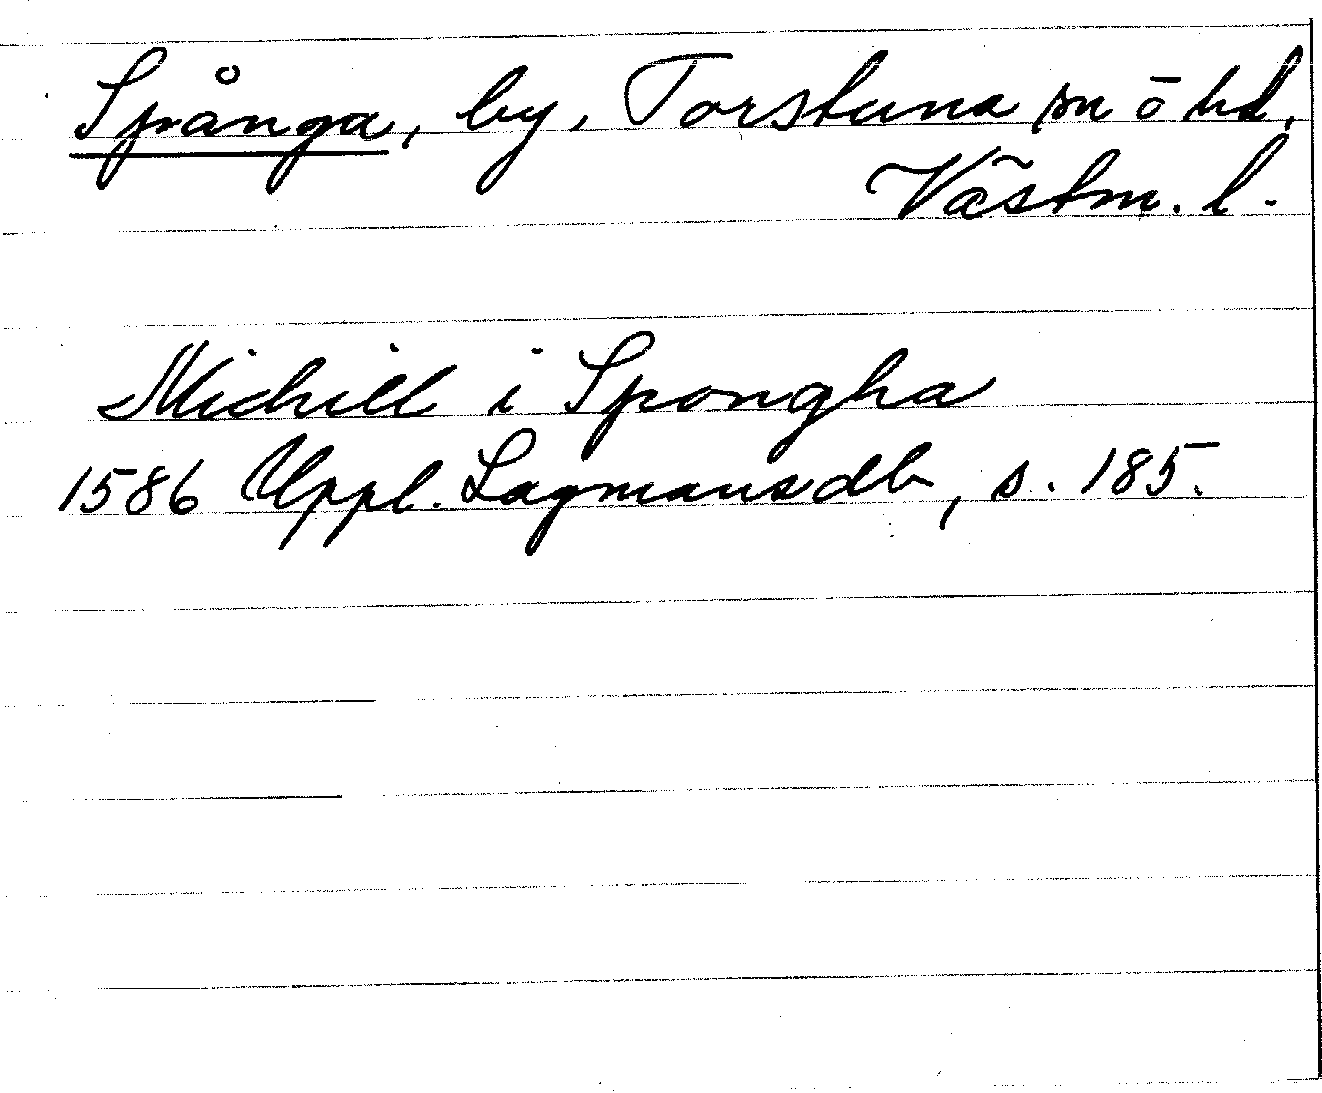 Spånga, by, Torstuna sn ō hd,
Västm. l.
Michill i Spongha
1586 Uppl. Lagmansdb, s. 185.